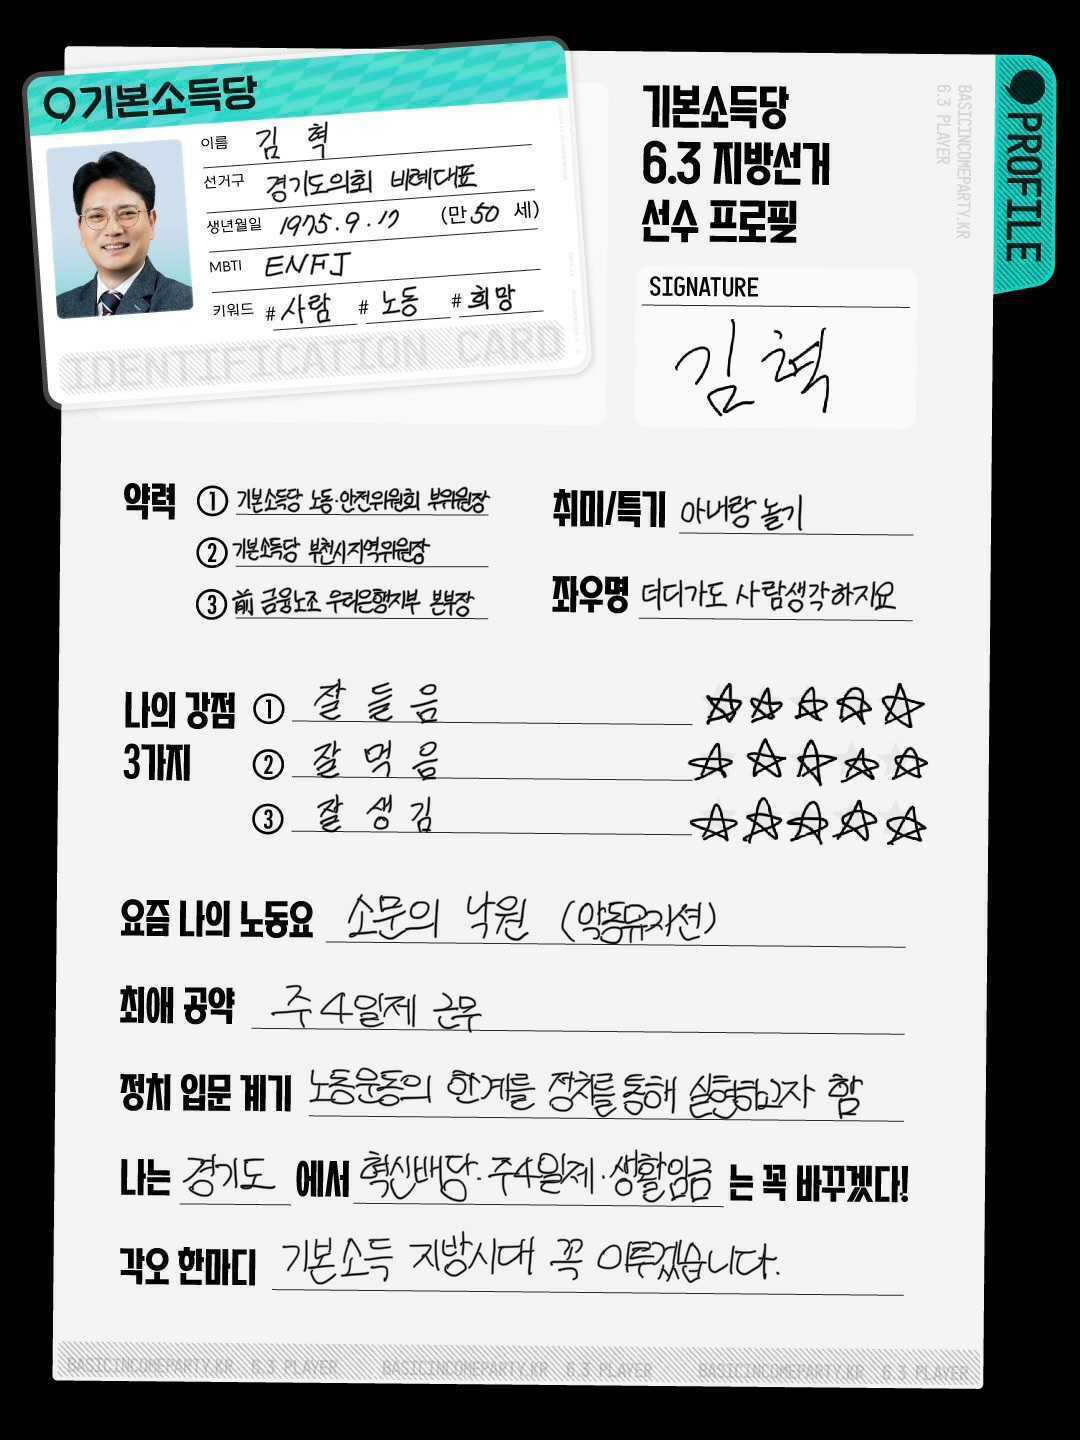 기본소득당
이름 김 혁
선거구 경기도의회 비례대표
생년월일 1975.9.17 (만 50 세)
MBTI ENFJ
키워드 #사람 #노동 #희망
IDENTIFICATION CARD
기본소득당
6.3 지방선거
선수 프로필
SIGNATURE
김혁
PROFILE
BASICINCOMEPARTY.KR
6.3 PLAYER
약력 ① 기본소득당 노동·안전위원회 부위원장
② 기본소득당 부천시지역위원장
③ 前 금융노조 우리은행지부 본부장
취미/특기 아내랑 놀기
좌우명 더디가도 사람생각하지요
나의 강점 3가지
① 잘 들음 ☆☆☆☆☆
② 잘 먹음 ☆☆☆☆☆
③ 잘 생김 ☆☆☆☆☆
요즘 나의 노동요 소문의 낙원 (악동뮤지션)
최애 공약 주4일제 근무
정치 입문 계기 노동운동의 한계를 정치를 통해 실현하고자 함
나는 경기도 에서 혁신배당·주4일제·생활임금 는 꼭 바꾸겠다!
각오 한마디 기본소득 지방시대 꼭 이루겠습니다.
BASICINCOMEPARTY.KR 6.3 PLAYER BASICINCOMEPARTY.KR 6.3 PLAYER BASICINCOMEPARTY.KR 6.3 PLAYER